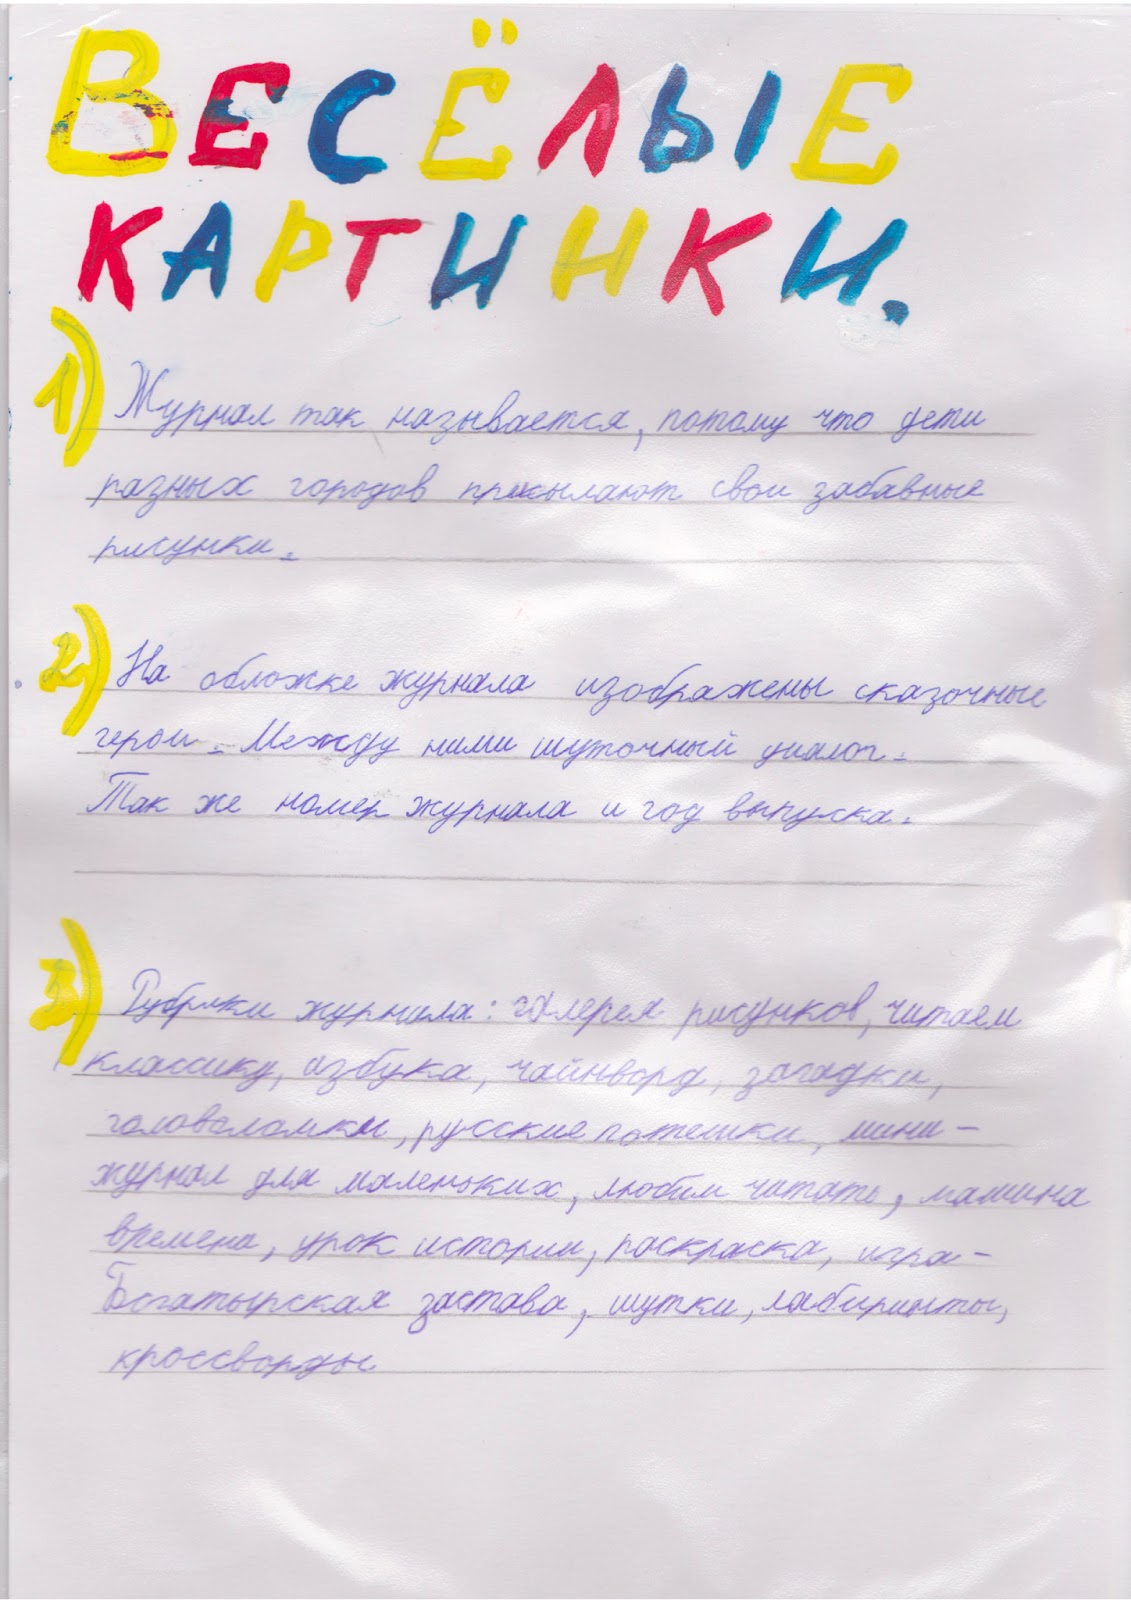 ВЕСЁЛЫЕ
КАРТИНКИ.
1) Журнал так называется, потому что дети
разных городов присылают свои забавные
рисунки.
2) На обложке журнала изображены сказочные
герои. Между ними шуточный диалог.
Так же номер журнала и год выпуска.
3) Рубрики журнала: галерея рисунков, читаем
классику, азбука, чайнворд, загадки,
головоломки, русские потешки, мини-
журнал для маленьких, любим читать, машина
времени, урок истории, раскраска, игра-
Богатырская застава, шутки, лабиринты,
кроссворды